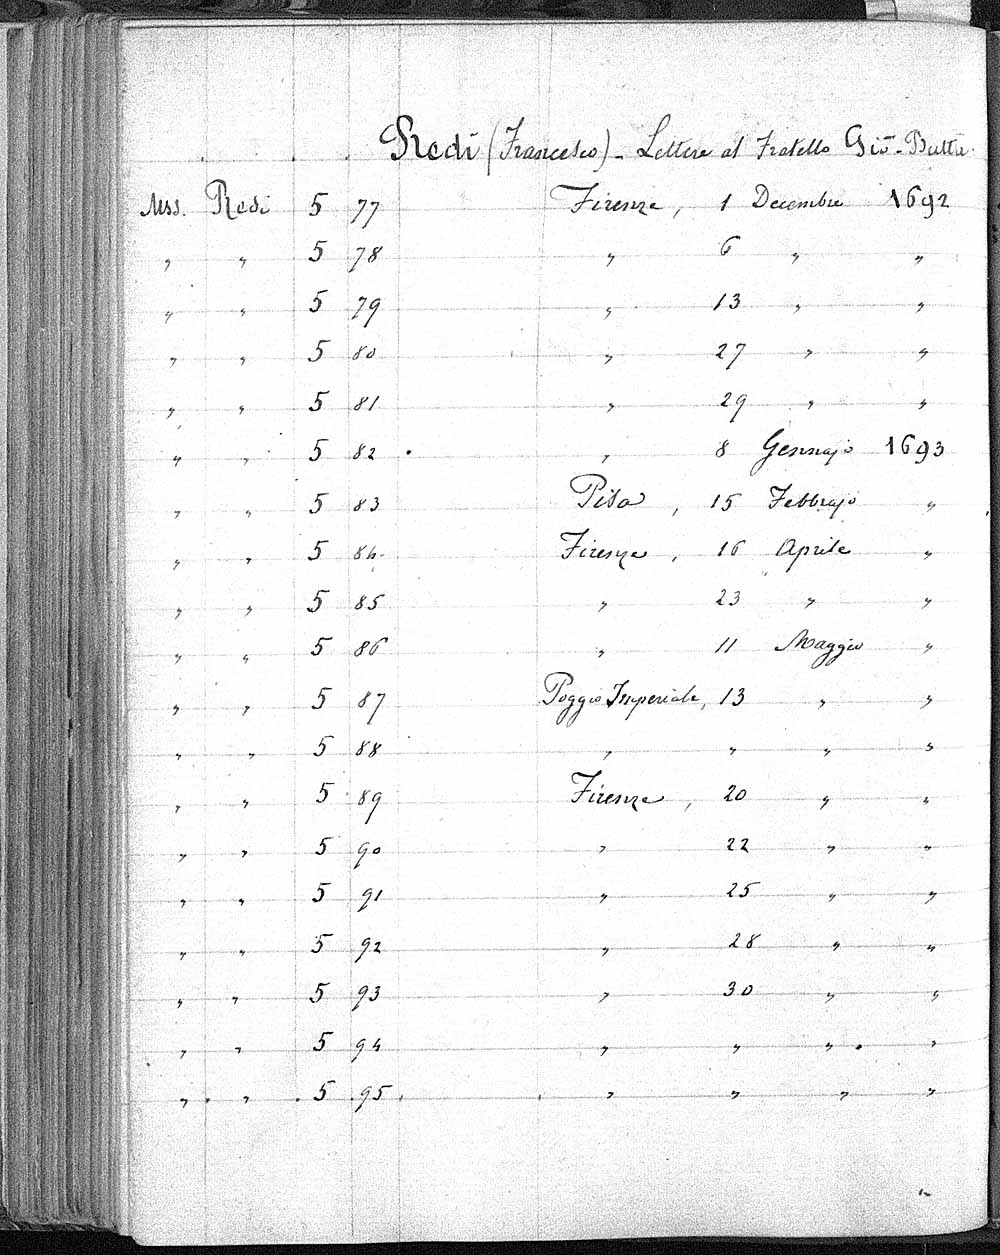 Redi (Francesco) - Lettere al Fratello Gio-Batta.
Mss. Redi 5 77 Firenze, 1 Decembre 1692
" " 5 78 " 6 " "
" " 5 79 " 13 " "
" " 5 80 " 27 " "
" " 5 81 " 29 " "
" " 5 82 " 8 Gennajo 1693
" " 5 83 Pisa, 15 Febbrajo "
" " 5 84 Firenze, 16 Aprile "
" " 5 85 " 23 " "
" " 5 86 " 11 Maggio "
" " 5 87 Poggio Imperiale, 13 " "
" " 5 88 " " " "
" " 5 89 Firenze, 20 " "
" " 5 90 " 22 " "
" " 5 91 " 25 " "
" " 5 92 " 28 " "
" " 5 93 " 30 " "
" " 5 94 " " " "
" " 5 95 " " " "